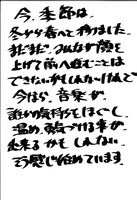 今、季節は、
冬から春へと移りました。
まだまだ、みんなが顔を
上げて前へ進むことは
できないかもしれないけれど
今なら、音楽が、
誰かの気持ちをほぐし、
温め、勇気づける事が
出来るかもしれない。
そう感じ始めています。